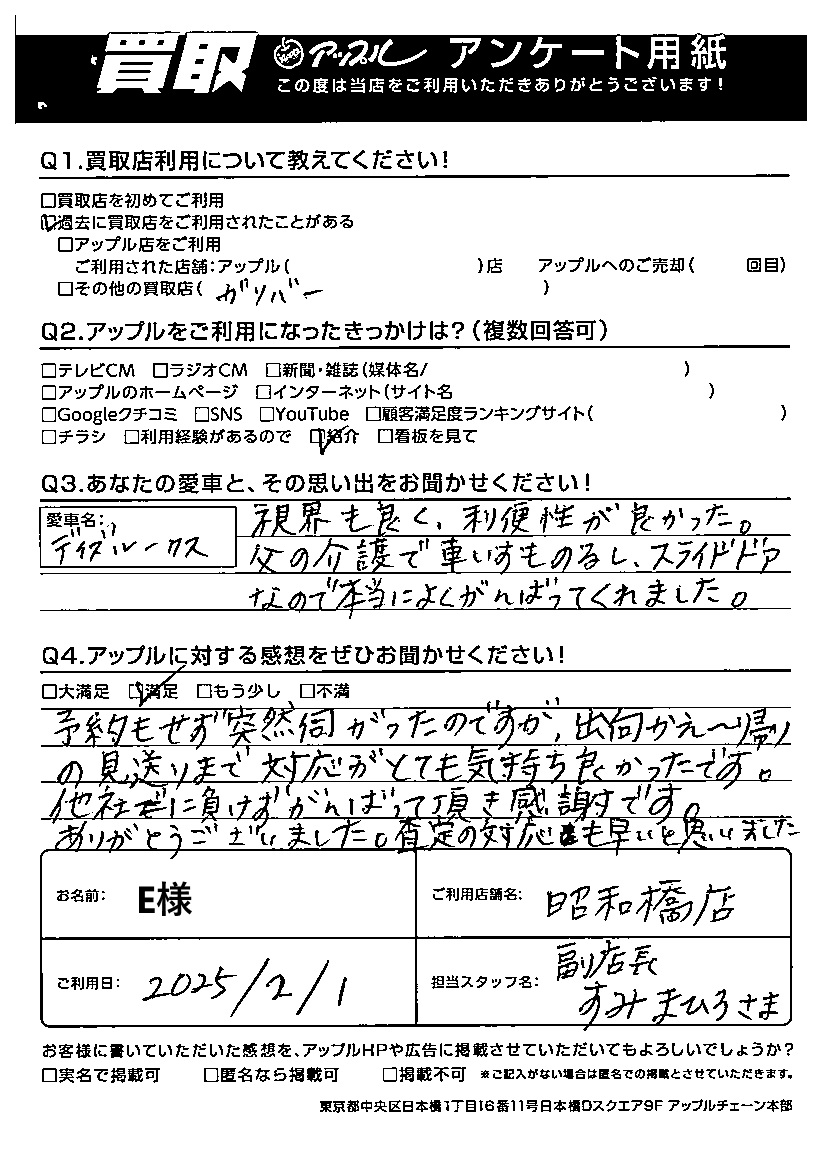 買取 アップル アンケート用紙
この度は当店をご利用いただきありがとうございます!
Q1.買取店利用について教えてください!
□買取店を初めてご利用
☑過去に買取店をご利用されたことがある
□アップル店をご利用
ご利用された店舗:アップル( )店 アップルへのご売却( 回目)
□その他の買取店( ガリバー )
Q2.アップルをご利用になったきっかけは?(複数回答可)
□テレビCM □ラジオCM □新聞・雑誌(媒体名/ )
□アップルのホームページ □インターネット(サイト名 )
□Googleクチコミ □SNS □YouTube □顧客満足度ランキングサイト( )
□チラシ □利用経験があるので ☑紹介 □看板を見て
Q3.あなたの愛車と、その思い出をお聞かせください!
愛車名:
デイズルークス
視界も良く、利便性が良かった。
父の介護で車いすものるし、スライドドア
なので本当によくがんばってくれました。
Q4.アップルに対する感想をぜひお聞かせください!
□大満足 ☑満足 □もう少し □不満
予約もせず突然伺がったのですが、出向かえ〜帰り
の見送りまで対応がとても気持ち良かったです。
他社に負けずがんばって頂き感謝です。
ありがとうございました。査定の対応も早いと思いました
お名前: E様
ご利用店舗名: 昭和橋店
ご利用日: 2025/2/1
担当スタッフ名: 副店長
すみまひろさま
お客様に書いていただいた感想を、アップルHPや広告に掲載させていただいてもよろしいでしょうか?
□実名で掲載可 □匿名なら掲載可 □掲載不可 ※ご記入がない場合は匿名での掲載とさせていただきます。
東京都中央区日本橋1丁目16番11号日本橋Dスクエア9F アップルチェーン本部